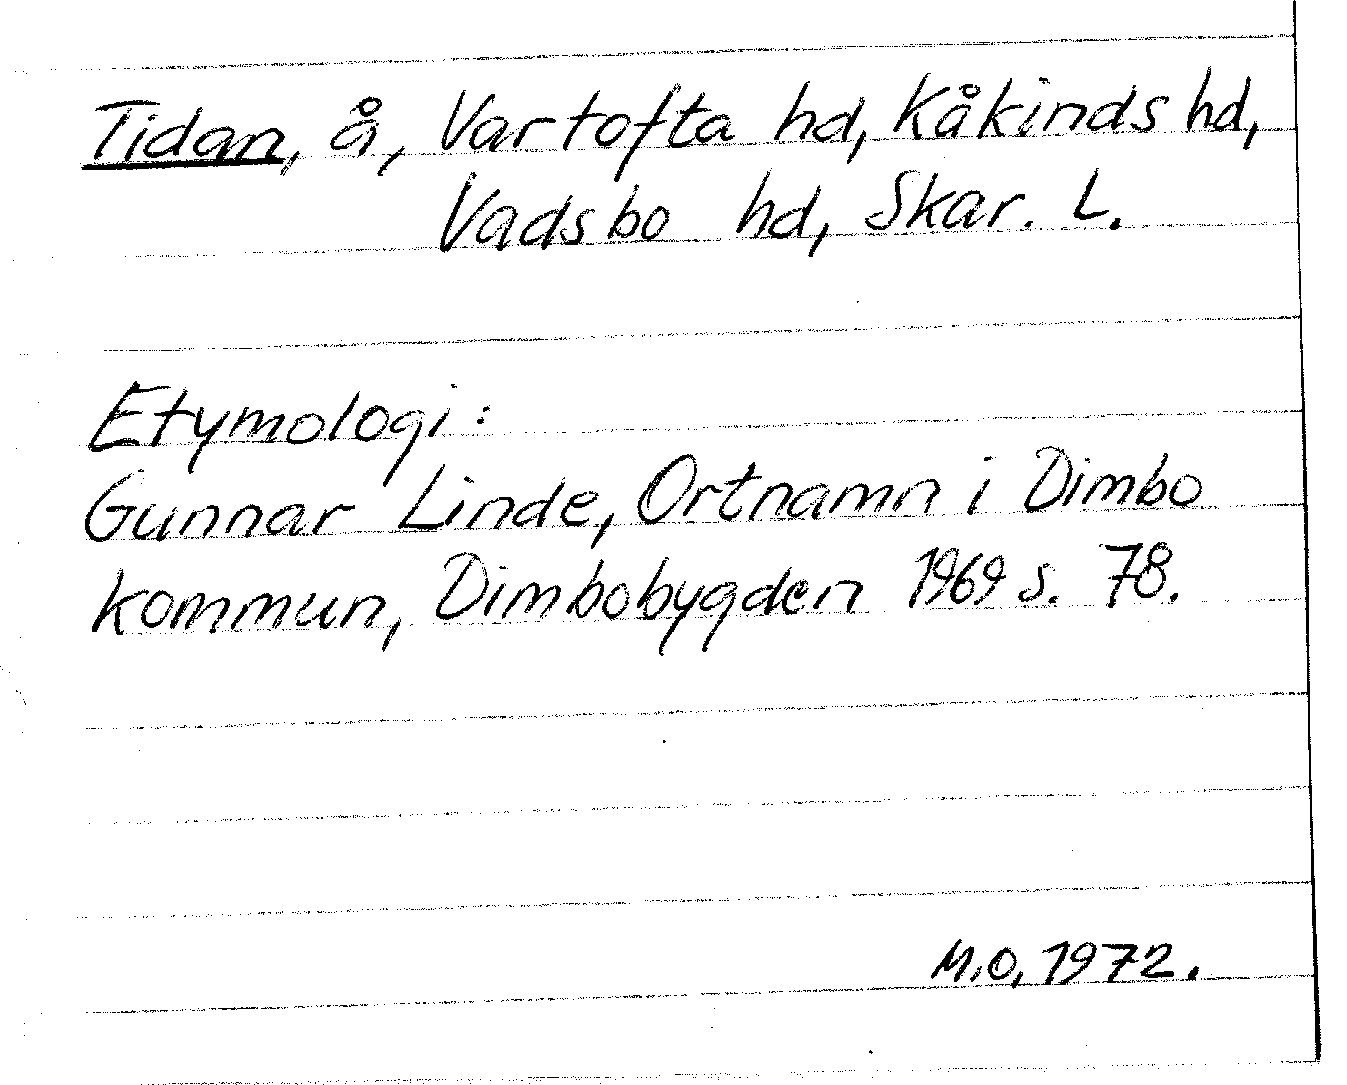 Tidan, å, Vartofta hd, Kåkinds hd,
Vadsbo hd, Skar. L.
Etymologi:
Gunnar Linde, Ortnamn i Dimbo
kommun, Dimbobygden 1969 s. 78.
M.O, 1972.